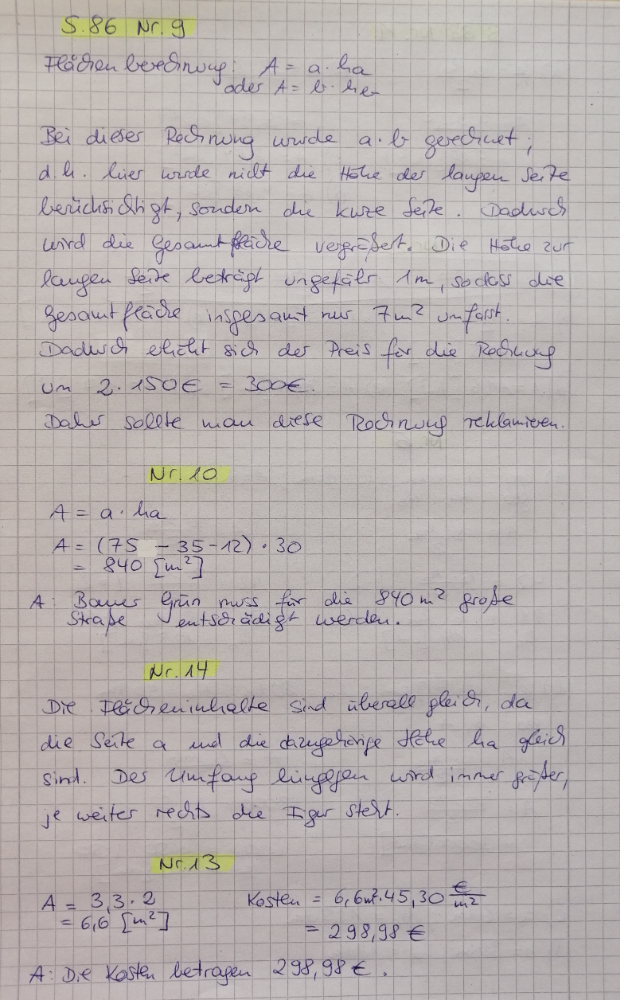 S.86 Nr.9
Flächenberechnung: A = a·ha
oder A = b·hb
Bei dieser Rechnung wurde a·b gerechnet,
d.h. hier wurde nicht die Höhe der langen Seite
berücksichtigt, sondern die kurze Seite. Dadurch
wird die Gesamtfläche vergrößert. Die Höhe zur
langen Seite beträgt ungefähr 1m, sodass die
Gesamtfläche insgesamt nur 7m² umfasst.
Dadurch erhöht sich der Preis für die Rechnung
um 2·150€ = 300€.
Daher sollte man diese Rechnung reklamieren.
Nr.10
A = a·ha
A = (75 - 35-12)·30
= 840 [m²]
A: Bauer Grün muss für die 840m² große
Straße entschädigt werden.
Nr.14
Die Flächeninhalte sind überall gleich, da
die Seite a und die dazugehörige Höhe ha gleich
sind. Der Umfang hingegen wird immer größer,
je weiter rechts die Figur steht.
Nr.13
A = 3,3·2 Kosten = 6,6m²·45,30 €/m²
= 6,6 [m²] = 298,98 €
A: Die Kosten betragen 298,98€.